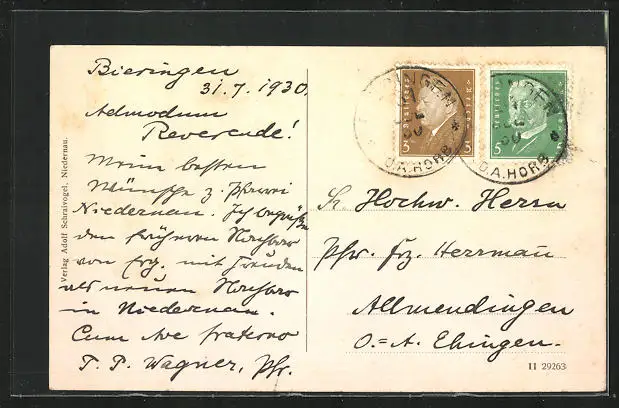 Bieringen
31.7.1930.
Admodum
Reverende!
Meine besten
Wünsche z. Pfarrei
Niedernau. Ich begrüße
den früheren Nachbar
von Erg. mit Freuden
als neuen Nachbar
in Niedernau.
Cum Ave fraterno
T. P. Wagner, Pfr.
Verlag Adolf Schraivogel, Niedernau.
BIERINGEN
O.A. HORB
DEUTSCHES REICH
3 3
O.A. HORB
DEUTSCHES
5 5
Sr. Hochw. Herrn
Pfr. Frz. Herrmann
Allmendingen
O.=A. Ehingen.
II 29263